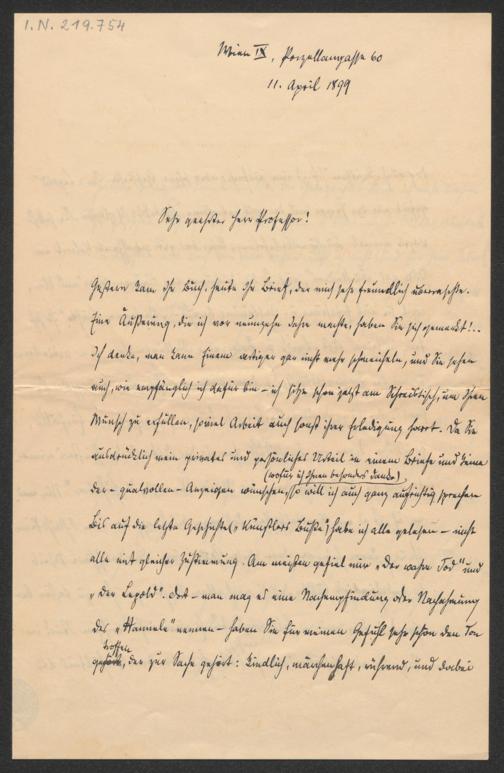 I.N. 219.754
Wien IX, Porzellangasse 60
11. April 1899
Sehr geehrter Herr Professor!
Gestern kam Ihr Buch, heute Ihr Brief, der mich sehr freundlich überraschte.
Eine Äußerung, die ich vor neunzehn Jahren machte, haben Sie sich gemerkt!..
Ich denke, man kann Einem artiger gar nicht mehr schmeicheln, und Sie sehen
auch, wie empfänglich ich dafür bin – ich sitze schon jetzt am Schreibtisch, um Ihren
Wunsch zu erfüllen, soviel Arbeit auch sonst ihrer Erledigung harrt. Da Sie
ausdrücklich mein privates und persönliches Urteil in einem Briefe und keine
(wofür ich Ihnen besonders danke)
der – qualvollen – Anzeigen wünschen, so will ich auch ganz aufrichtig sprechen
Bis auf die letzte Geschichte („Künstlers Buße") habe ich alle gelesen – nicht
alle mit gleicher Zustimmung. Am meisten gefiel mir „Der wahre Tod" und
„Der Leopold". Dort – man mag es eine Nachempfindung oder Nachahmung
des „Hannele" nennen – haben Sie für meinen Gefühl sehr schön den Ton
troffen
, der zur Sache gehört: kindlich, märchenhaft, rührend, und dabei